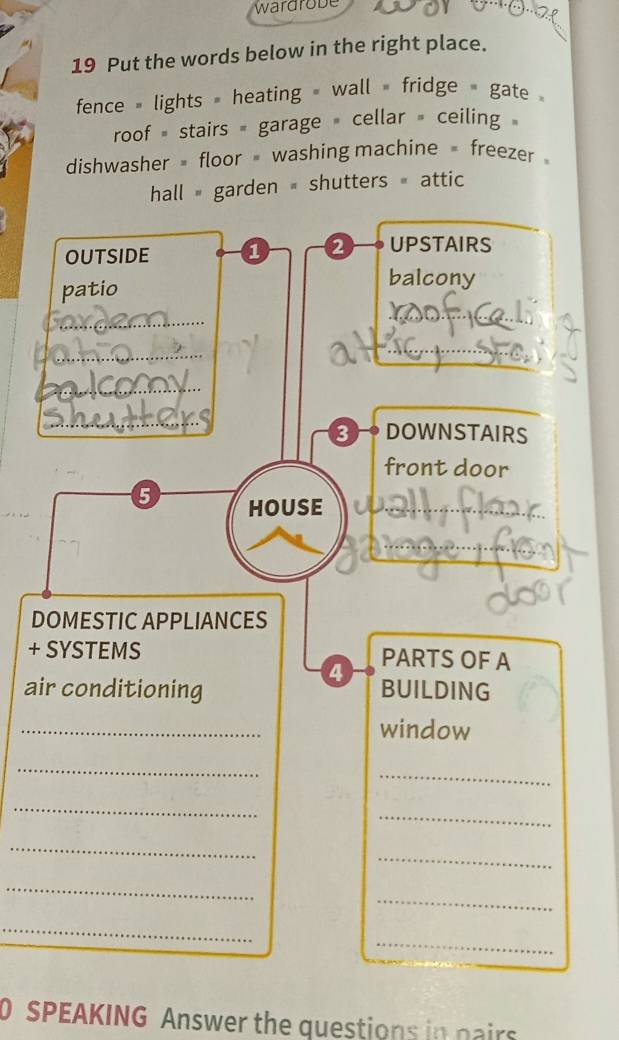 wardrobe
19 Put the words below in the right place.
fence ▪ lights ▪ heating ▪ wall ▪ fridge ▪ gate ▪
roof ▪ stairs ▪ garage ▪ cellar ▪ ceiling ▪
dishwasher ▪ floor ▪ washing machine ▪ freezer ▪
hall ▪ garden ▪ shutters ▪ attic
OUTSIDE
patio
Gardem
patio
balcony
shutters
1
2
UPSTAIRS
balcony
roof,
attic, stairs
3
DOWNSTAIRS
front door
wall, floor
garage, front
door
HOUSE
5
DOMESTIC APPLIANCES
+ SYSTEMS
air conditioning
4
PARTS OF A
BUILDING
window
0 SPEAKING Answer the questions in pairs